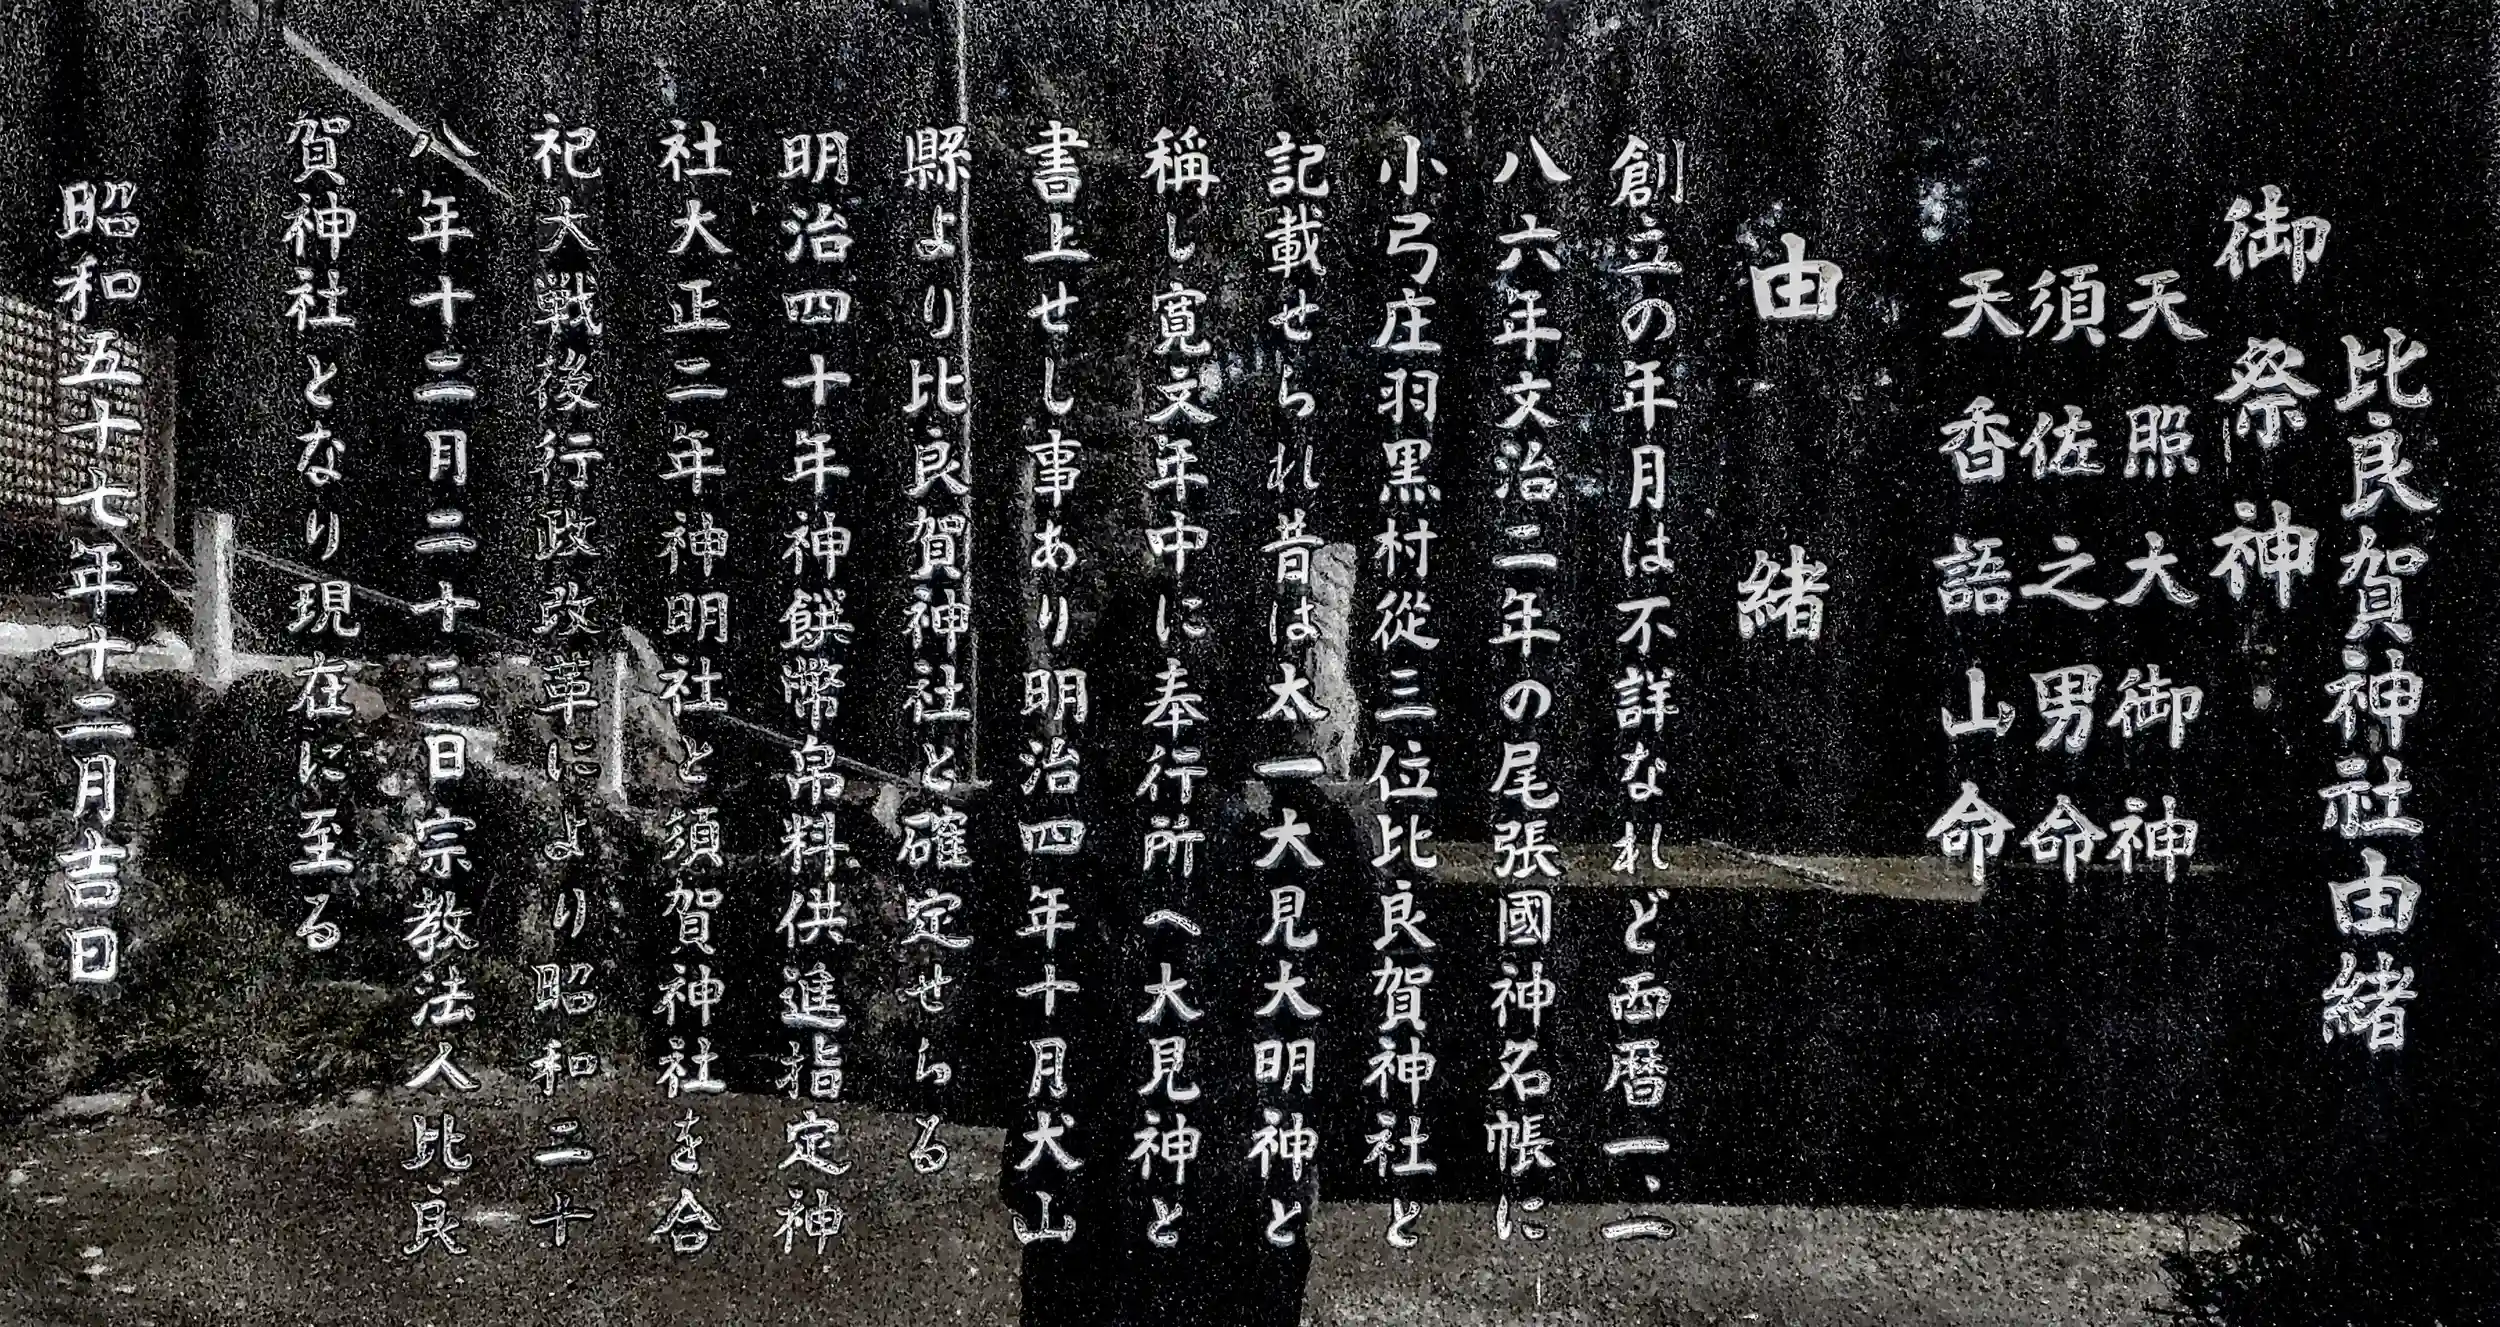 比良賀神社由緒
御祭神
天照大御神
須佐之男命
天香語山命
由緒
創立の年月は不詳なれど西暦一、一
八六年文治二年の尾張國神名帳に
小弓庄羽黒村從三位比良賀神社と
記載せられ昔は太一大見大明神と
稱し寛文年中に奉行所へ大見神と
書上せし事あり明治四年十月犬山
縣より比良賀神社と確定せらる
明治四十年神饌幣帛料供進指定神
社大正二年神明社と須賀神社を合
祀大戦後行政改革により昭和二十
八年十二月二十三日宗教法人比良
賀神社となり現在に至る
昭和五十七年十二月吉日